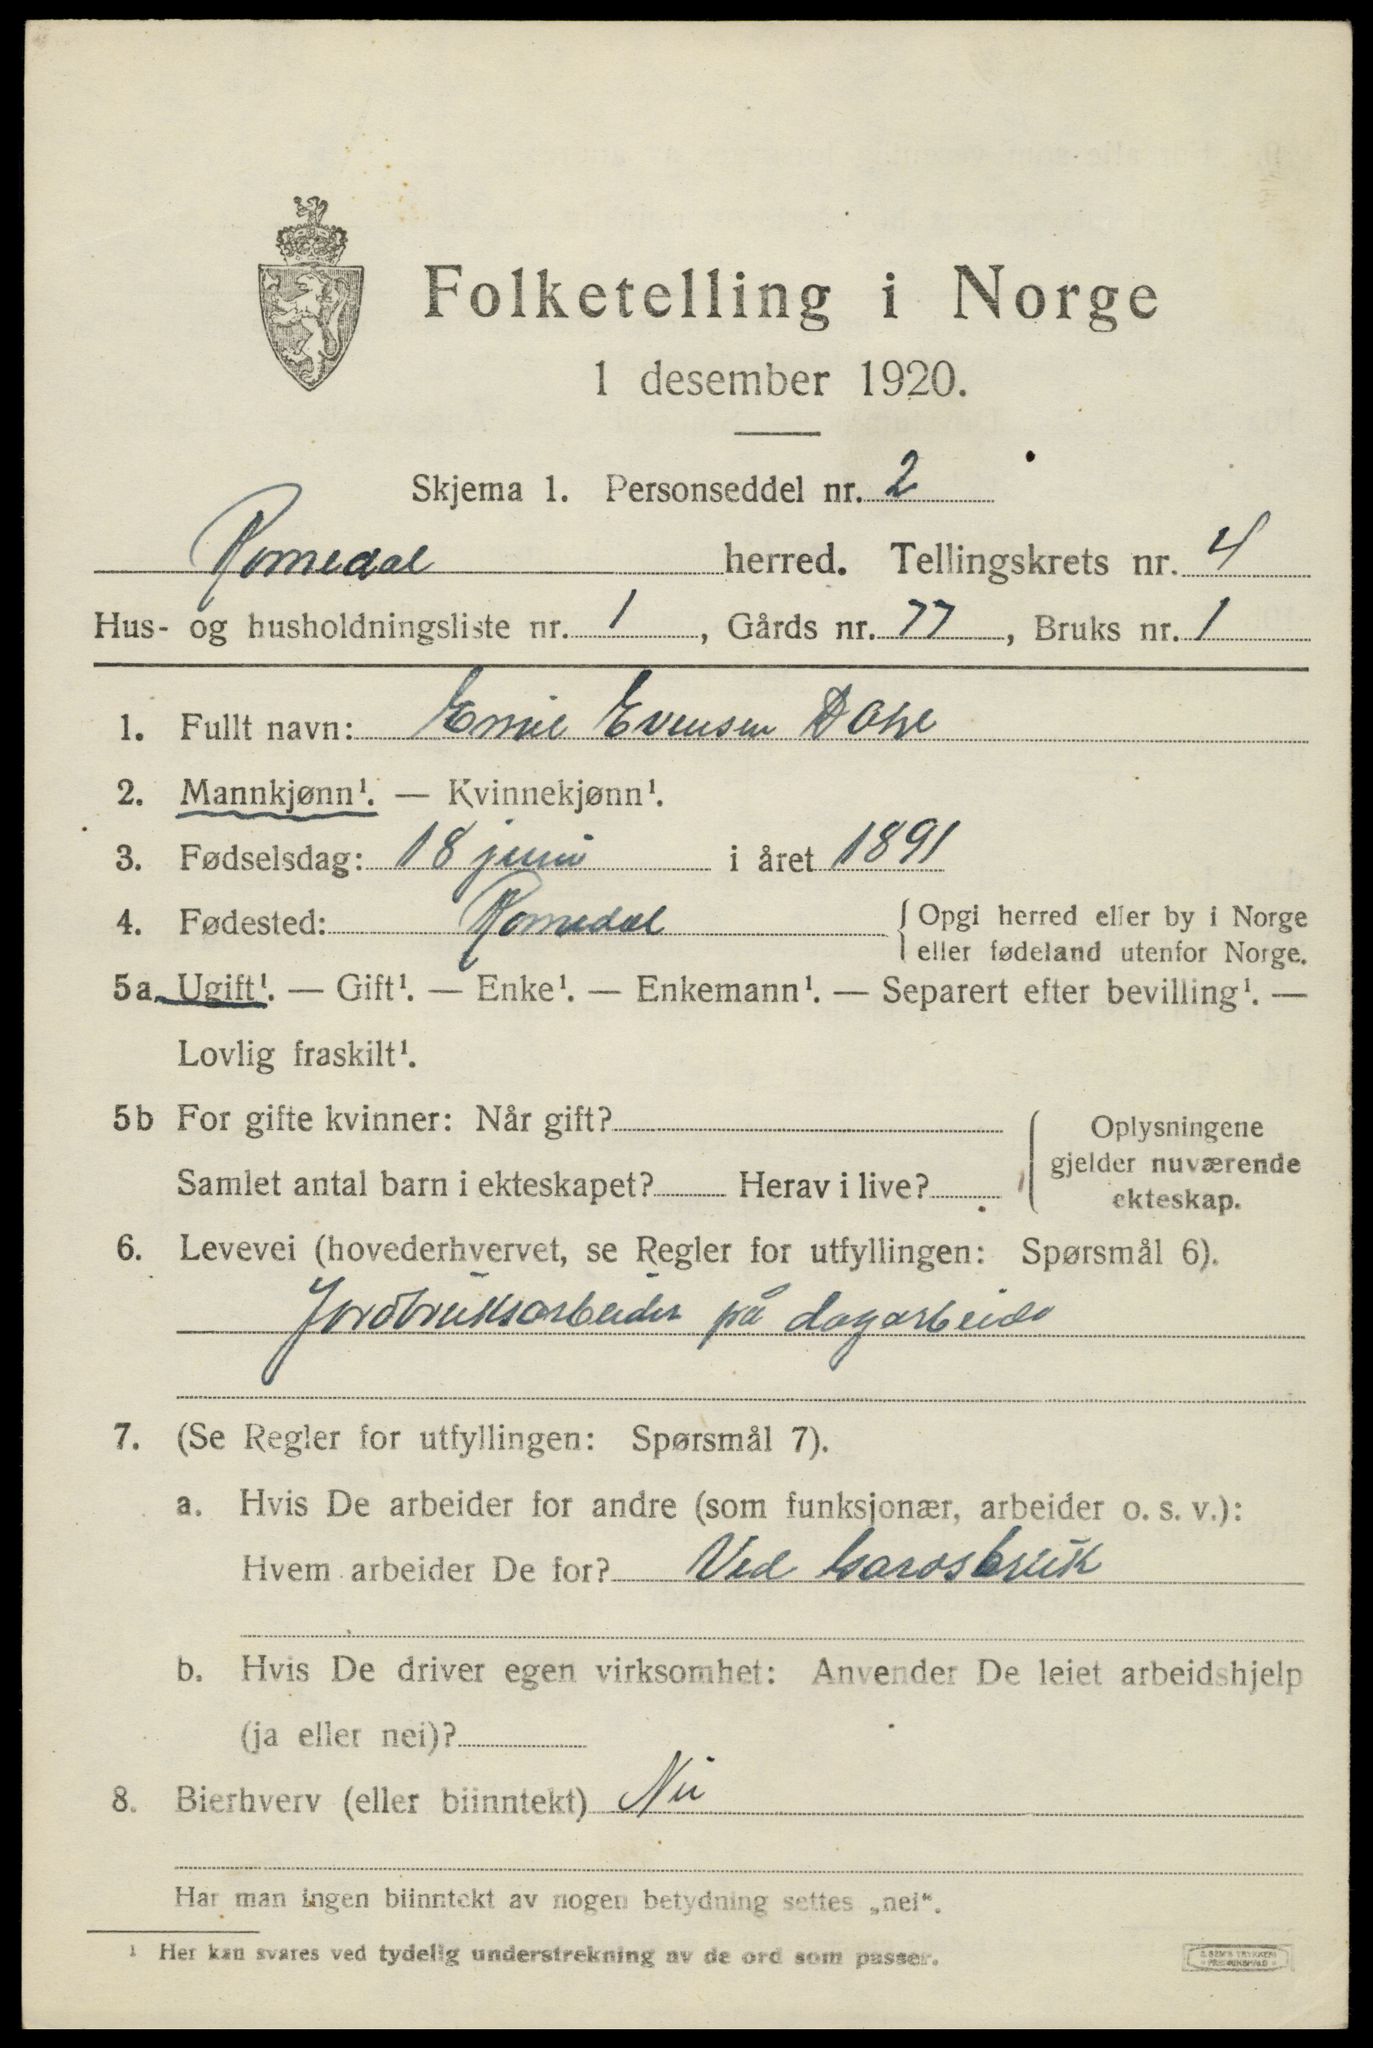 Folketelling i Norge
1 desember 1920.
Skjema 1. Personseddel nr. 2
Romedal herred. Tellingskrets nr. 4
Hus- og husholdningsliste nr. 1, Gårds nr. 77, Bruks nr. 1
1. Fullt navn: Emil Evensen
2. Mannkjønn¹. — Kvinnekjønn¹.
3. Fødselsdag: 18 juni i året 1891
4. Fødested: Romedal { Opgi herred eller by i Norge
eller fødeland utenfor Norge.
5a Ugift¹. — Gift¹. — Enke¹. — Enkemann¹. — Separert efter bevilling¹. —
Lovlig fraskilt¹.
5b For gifte kvinner: Når gift?
Samlet antal barn i ekteskapet? Herav i live?
Oplysningene
gjelder nuværende
ekteskap.
6. Levevei (hovederhvervet, se Regler for utfyllingen: Spørsmål 6).
Jordbruksarbeider på dagarbeide
7. (Se Regler for utfyllingen: Spørsmål 7).
a. Hvis De arbeider for andre (som funksjonær, arbeider o. s. v.):
Hvem arbeider De for? Ved Gardsbruk
b. Hvis De driver egen virksomhet: Anvender De leiet arbeidshjelp
(ja eller nei)?
8. Bierhverv (eller biinntekt) Nei
Har man ingen biinntekt av nogen betydning settes „nei“.
¹ Her kan svares ved tydelig understrekning av de ord som passer.